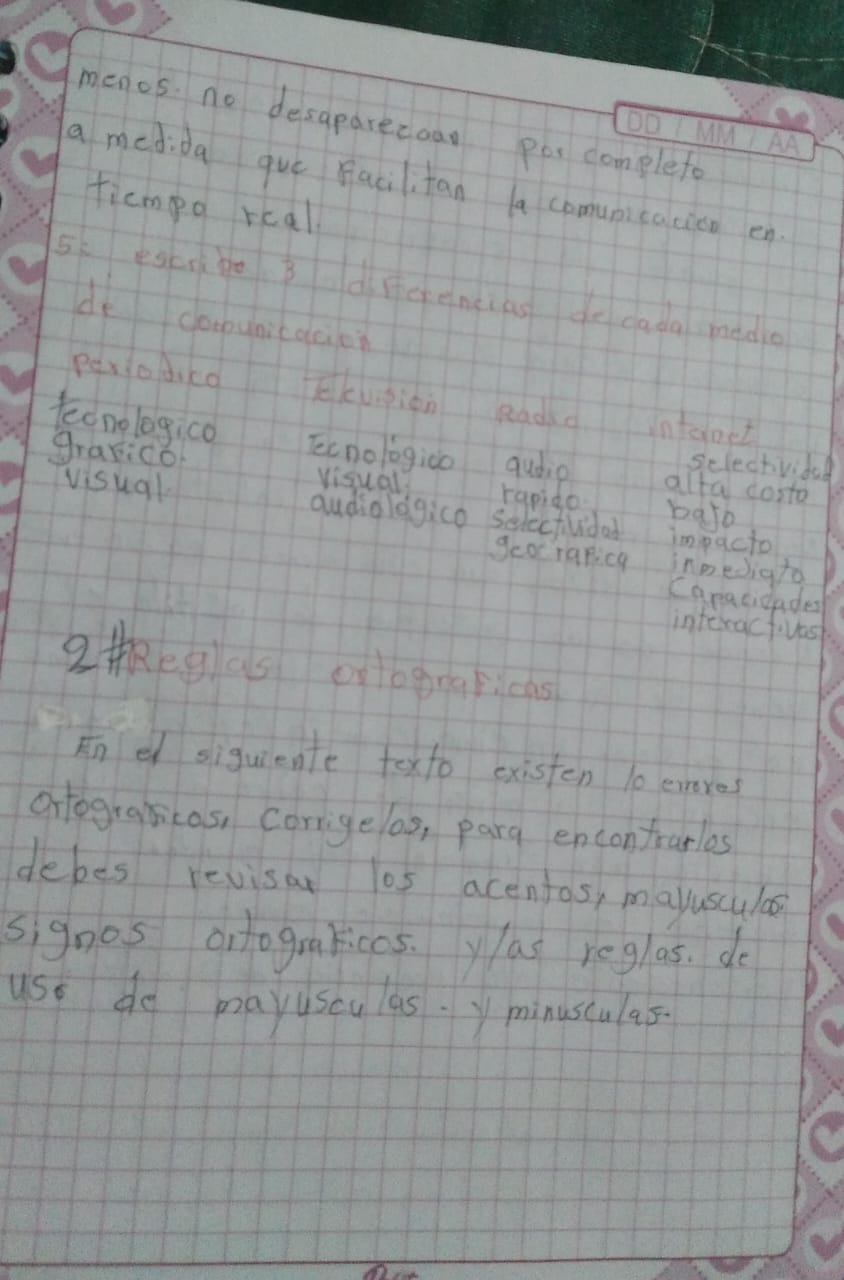 DD / MM / AA
menos. no desaparezcan por completo
a medida que facilitan la comunicacion en.
tiempo real.
5: escribe 3 diferencias de cada medio
de comunicacion
periodico Television Radio internet
tecnologico Tecnológico audio selectividad
grafico. visual. rapido. alta costo
visual. audiológico selectividad bajo
geografica impacto
inmediato
capacidades
interactivas
2# Reglas ortograficas
En el siguiente texto existen 10 errores
ortograficos, corrigelos, para encontrarlos
debes revisar los acentos, mayusculas
signos ortograficos. y las reglas. de
uso de mayusculas. y minusculas.